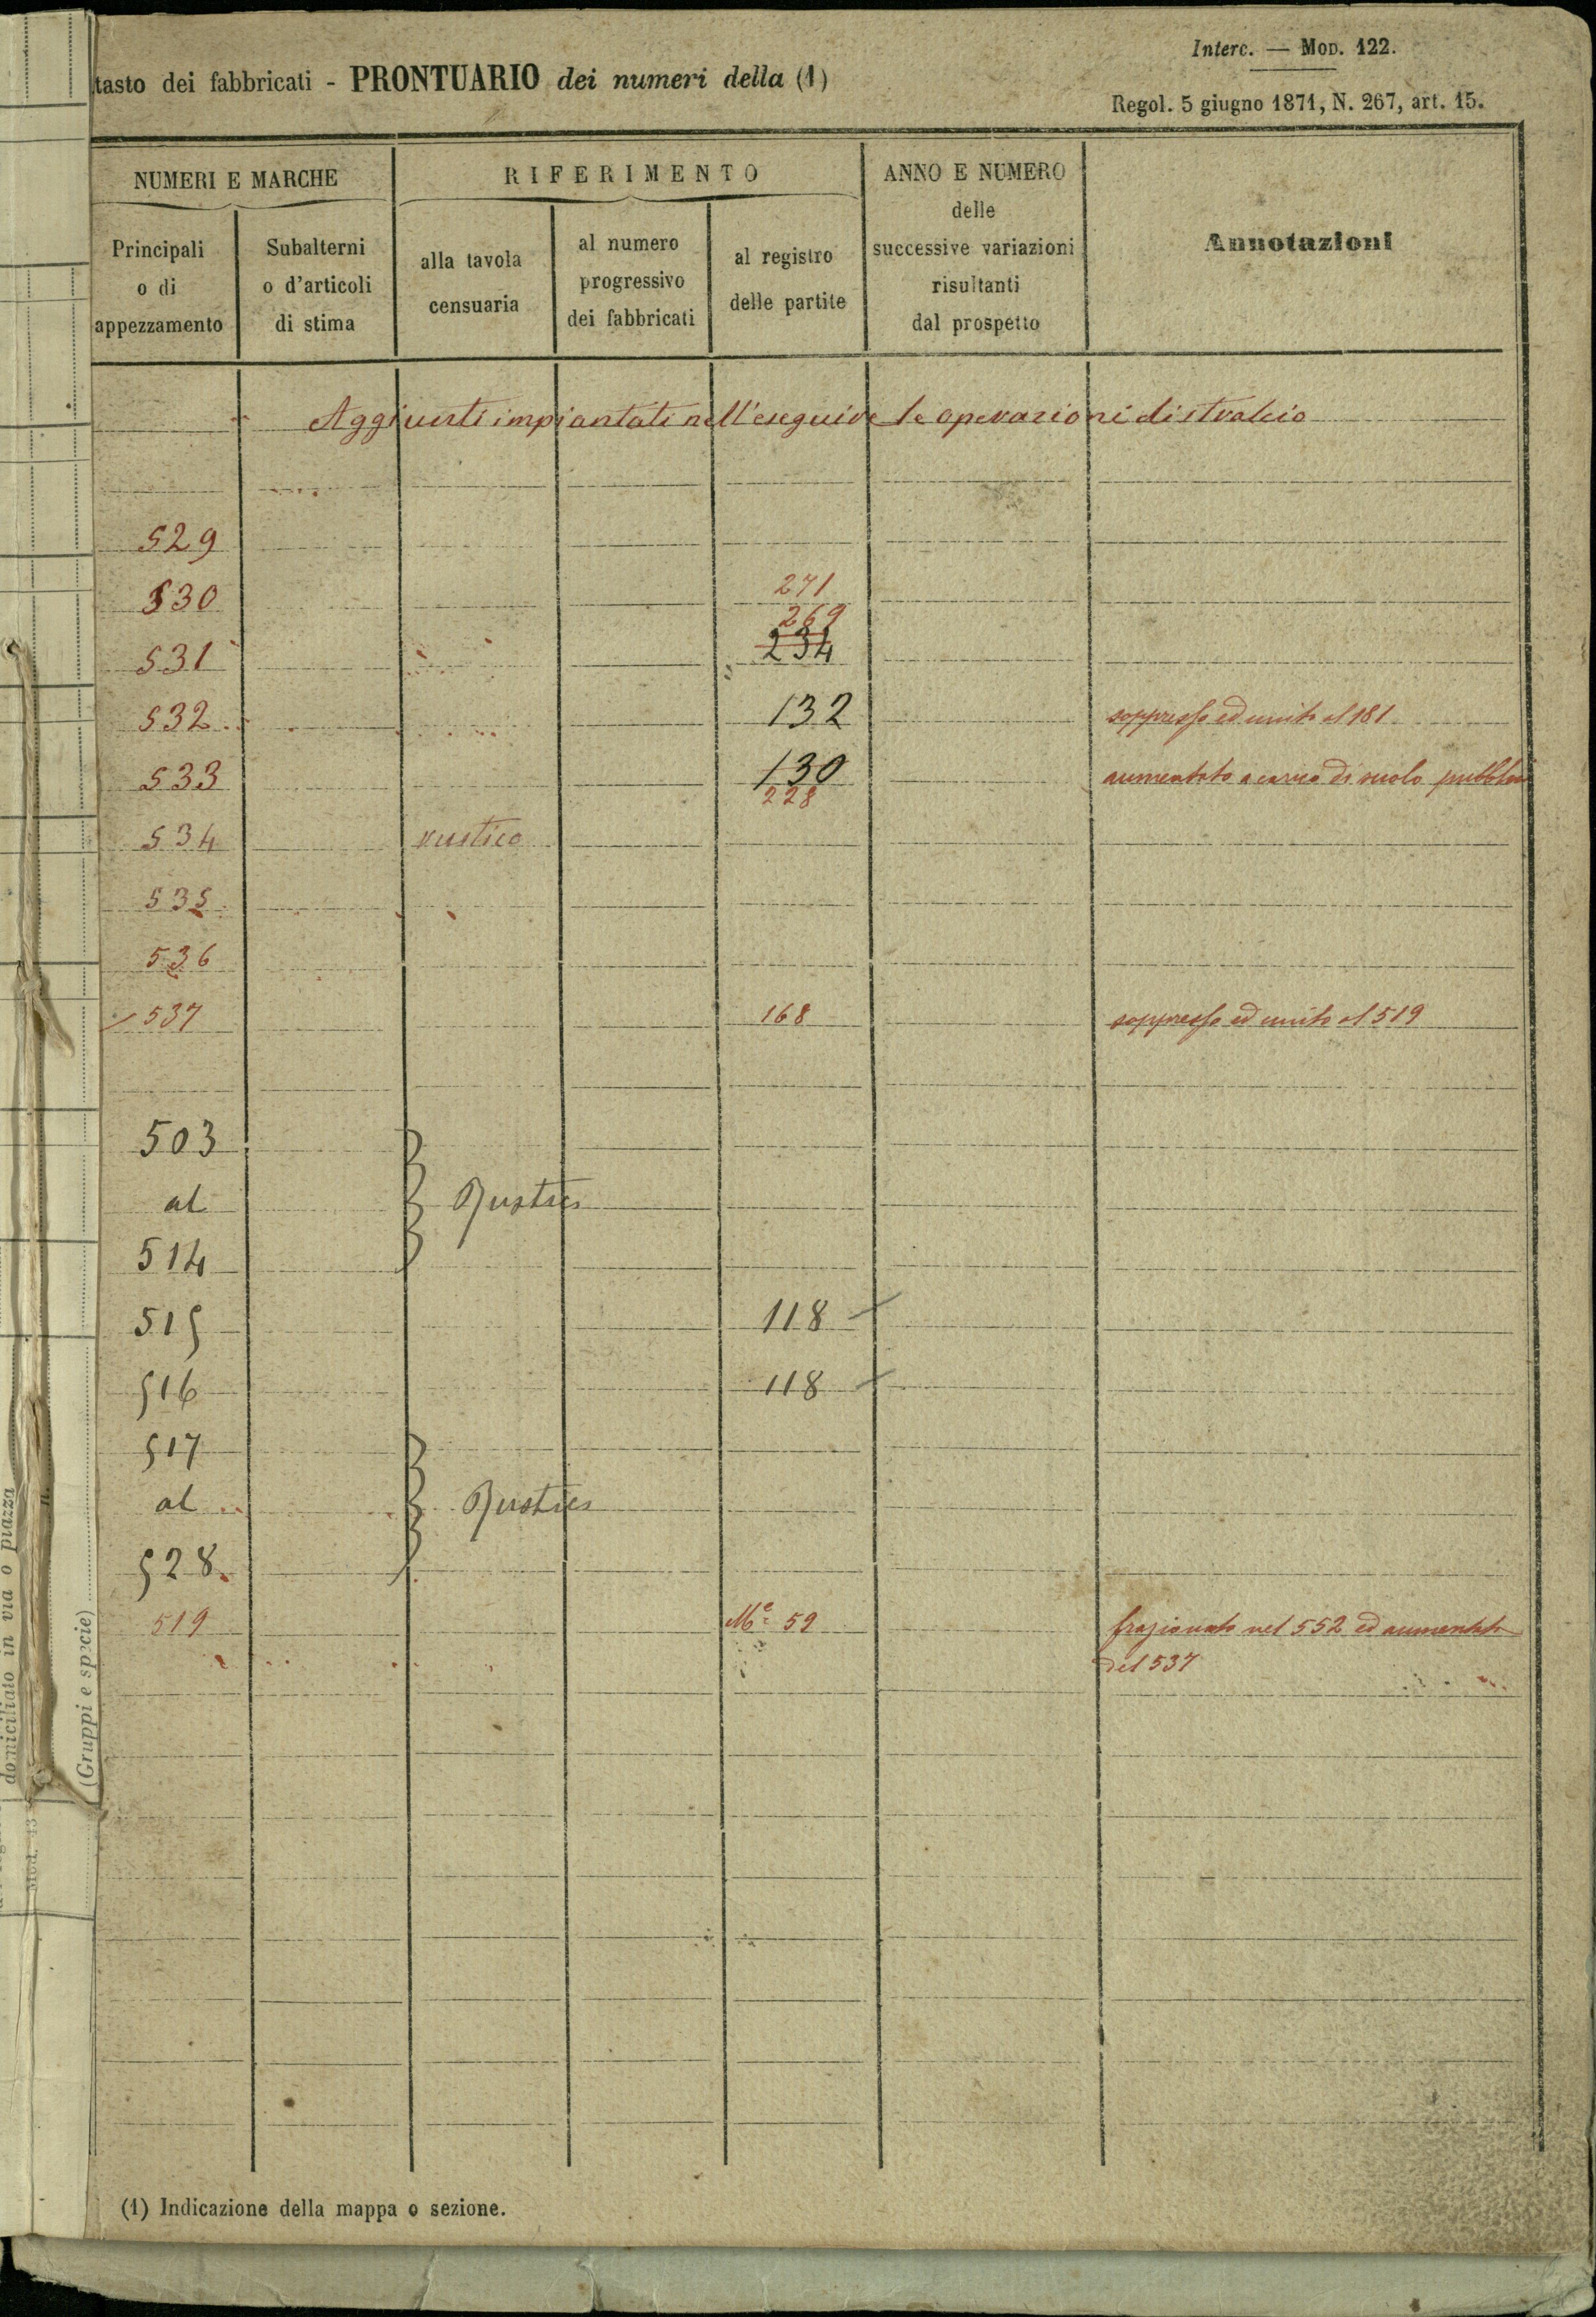 Interc. — Mod. 122.
tasto dei fabbricati - PRONTUARIO dei numeri della (1)
Regol. 5 giugno 1871, N. 267, art. 15.
NUMERI E MARCHE
RIFERIMENTO
ANNO E NUMERO
delle
successive variazioni
risultanti
dal prospetto
Annotazioni
Principali
o di
appezzamento
Subalterni
o d'articoli
di stima
alla tavola
censuaria
al numero
progressivo
dei fabbricati
al registro
delle partite
Aggiunti impiantati nell'eseguire le operazioni di stralcio
529
530 271
269
531 234
532 132 soppresso ed unito al 181
533 130 aumentato a carico di suolo pubblico
228
534 rustico
535
536
537 168 soppresso ed unito al 519
503
al Rustici
514
515 118
516 118
517
al Rustici
528
519 Me 59 frazionato nel 552 ed aumentato
del 537
(1) Indicazione della mappa o sezione.
domiciliato in via o piazza
(Gruppi e specie)
Mod. 13